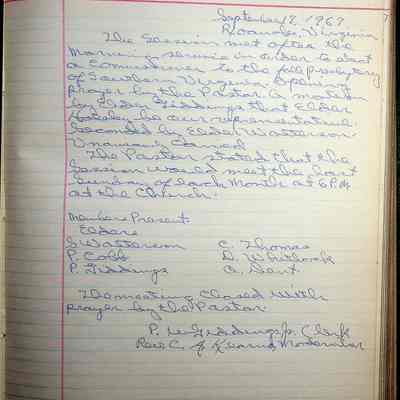 September 2, 1967
Roanoke, Virginia
The Session met after the
Morning service in order to elect
a Commissioner to the fall presbytery
of Southern Virginia. Opening
prayer by the Pastor. A motion
by Elder Giddings that Elder
be our representative.
Seconded by Elder Watterson.
Unanimous Carried
The Pastor stated that the
Session would meet the last
Sunday of each Month at 6 P.M.
at the Church.
Members Present
Elders
S Watterson C. Thomas
P. Cobb D. Whitlock
P. Giddings A. Dent
The meeting closed with
prayer by the Pastor.
P. Giddings Jr. Clerk
Rev C. J. Kearns, Moderator